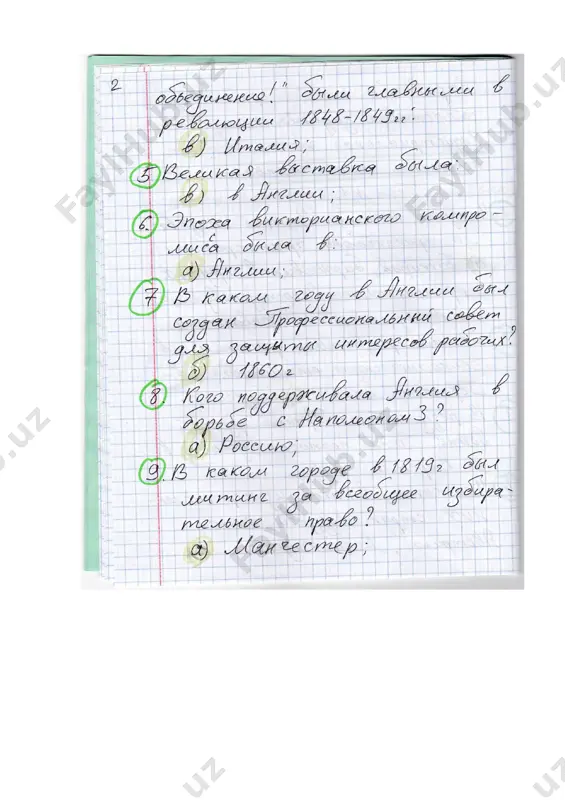 2
объединение!" были главными в
революции 1848-1849гг:
в) Италия;
5 Великая выставка была:
в) в Англии;
6. Эпоха викторианского компро-
мисса была в:
а) Англии;
7 В каком году в Англии был
создан Профессиональный совет
для защиты интересов рабочих?
б) 1860г
8. Кого поддерживала Англия в
борьбе с Наполеоном 3?
а) Россию;
9. В каком городе в 1819г был
митинг за всеобщее избира-
тельное право?
а) Манчестер;
FayiHub.uz